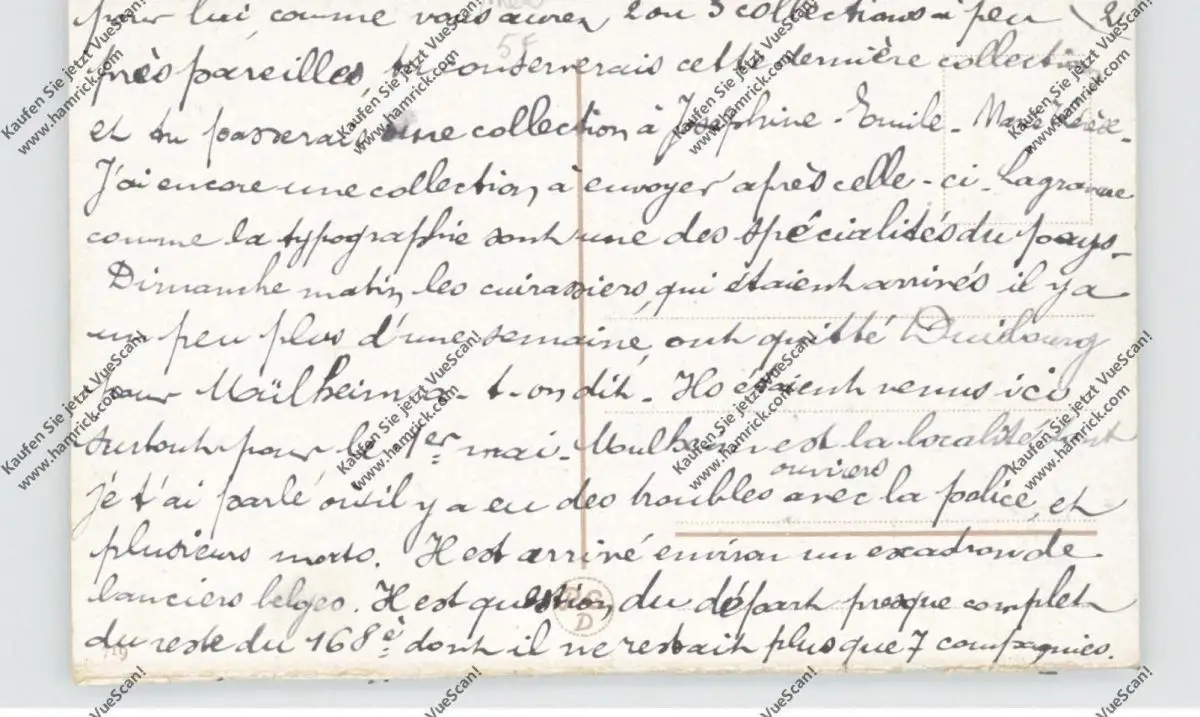 pour lui, comme vous aurez 2 ou 3 collections à peu
près pareilles, tu conserverais cette dernière collection
et tu passerais une collection à Joséphine - Emile - Marie Thérèse -
J'ai encore une collection à envoyer après celle-ci - La gravure
comme la typographie sont une des spécialités du pays -
Dimanche matin, les cuirassiers, qui étaient arrivés il y a
un peu plus d'une semaine, ont quitté Duisbourg
pour Maülheim a-t-on dit. Ils étaient venus ici
surtout pour le 1er mai - Mulheim est la localité dont
ouvriers
je t'ai parlé où il y a eu des troubles avec la police, et
plusieurs morts. Il est arrivé environ un escadron de
lanciers belges. Il est question du départ presque complet
du reste du 168è dont il ne restait plus que 7 compagnies.
55
D
719
Kaufen Sie jetzt VueScan!
www.hamrick.com